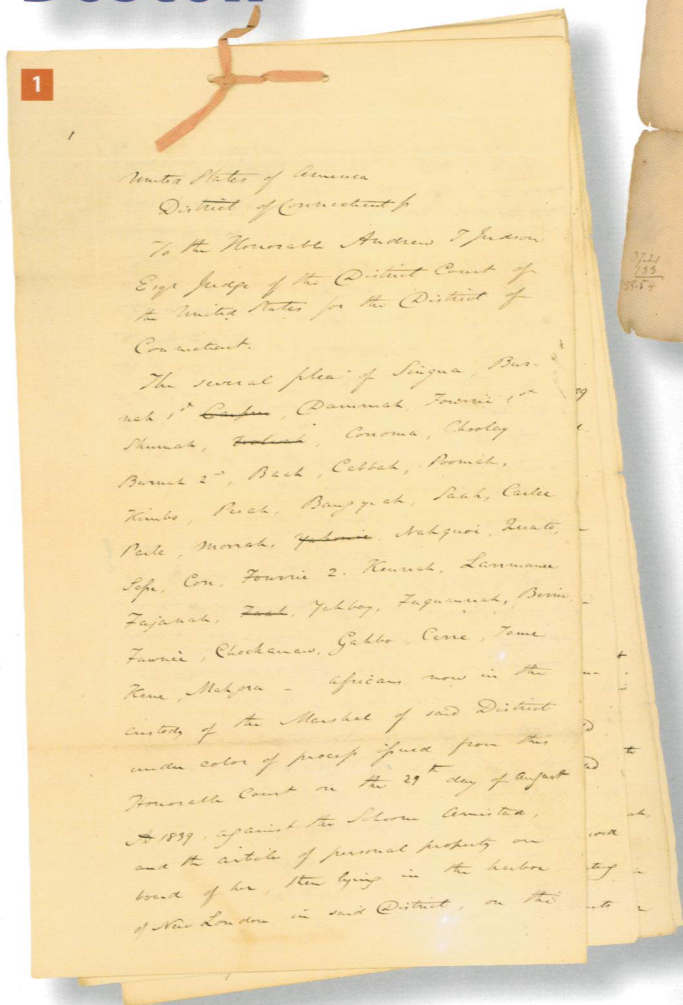 Boston
1
United States of America
District of Connecticut ss
To the Honorable Andrew T Judson
Esqr Judge of the District Court of
the United States for the District of
Connecticut.
The several pleas of Singua, Bur-
nah 1st, Dammah, Fourrie 1st
Shumah, Conoma, Choolay
Burnah 2d, Baah, Cabbah, Poomah,
Kimbo, Peeah, Bang yeah, Saah, Carlee
Parle, Morrah, Yahome, Nahquoi, Quato,
Sefu, Con, Fourrie 2. Kennah, Lammanee
Fajanah, Faah, Yahboy, Faquannah, Berrie
Fawnee, Chockamaw, Gabbo, Carre, Teme
Kene, Mahgra - africans now in the
custody of the Marshal of said District
under color of process issued from this
Honorable Court on the 29th day of August
AD 1839, against the Schooner Amistad,
and the article of personal property on
board of her, then lying in the harbor
of New London in said District, on the